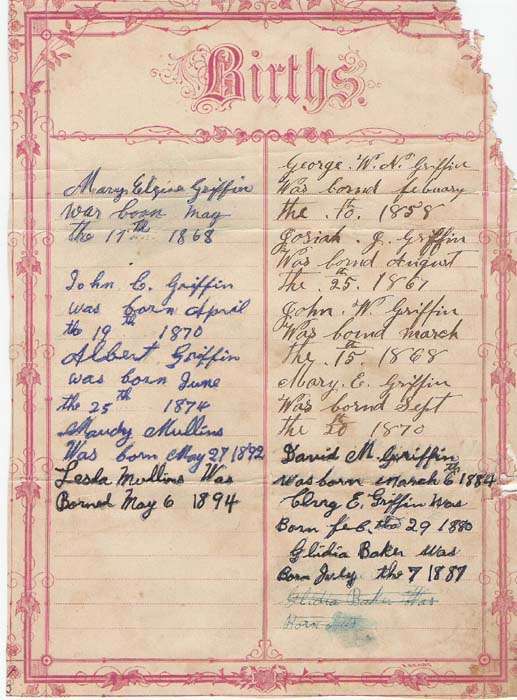 Births.
Mary Elzira Griffin
was born May
the 17th 1868
John C. Griffin
was born April
the 19th 1870
Albert Griffin
was born June
the 25th 1874
Maudy Mullins
Was born May 27 1892
Lesda Mullins Was
Borned May 6 1894
George. W. N. Griffin
Was bornd febuary
the. 10. 1858
Josiah. J. Griffin
Was bornd August
the. 25th. 1861
John. W. Griffin
Was bornd march
the. 15th. 1868
Mary. E. Griffin
Was bornd Sept
the 20th 1870
David M. Griffin
was born March 6th 1884
E. Griffin Was
Born feb. the 29 1880
Glidia Baker Was
Born July the 7 1887
Glidia Baker Was
Born